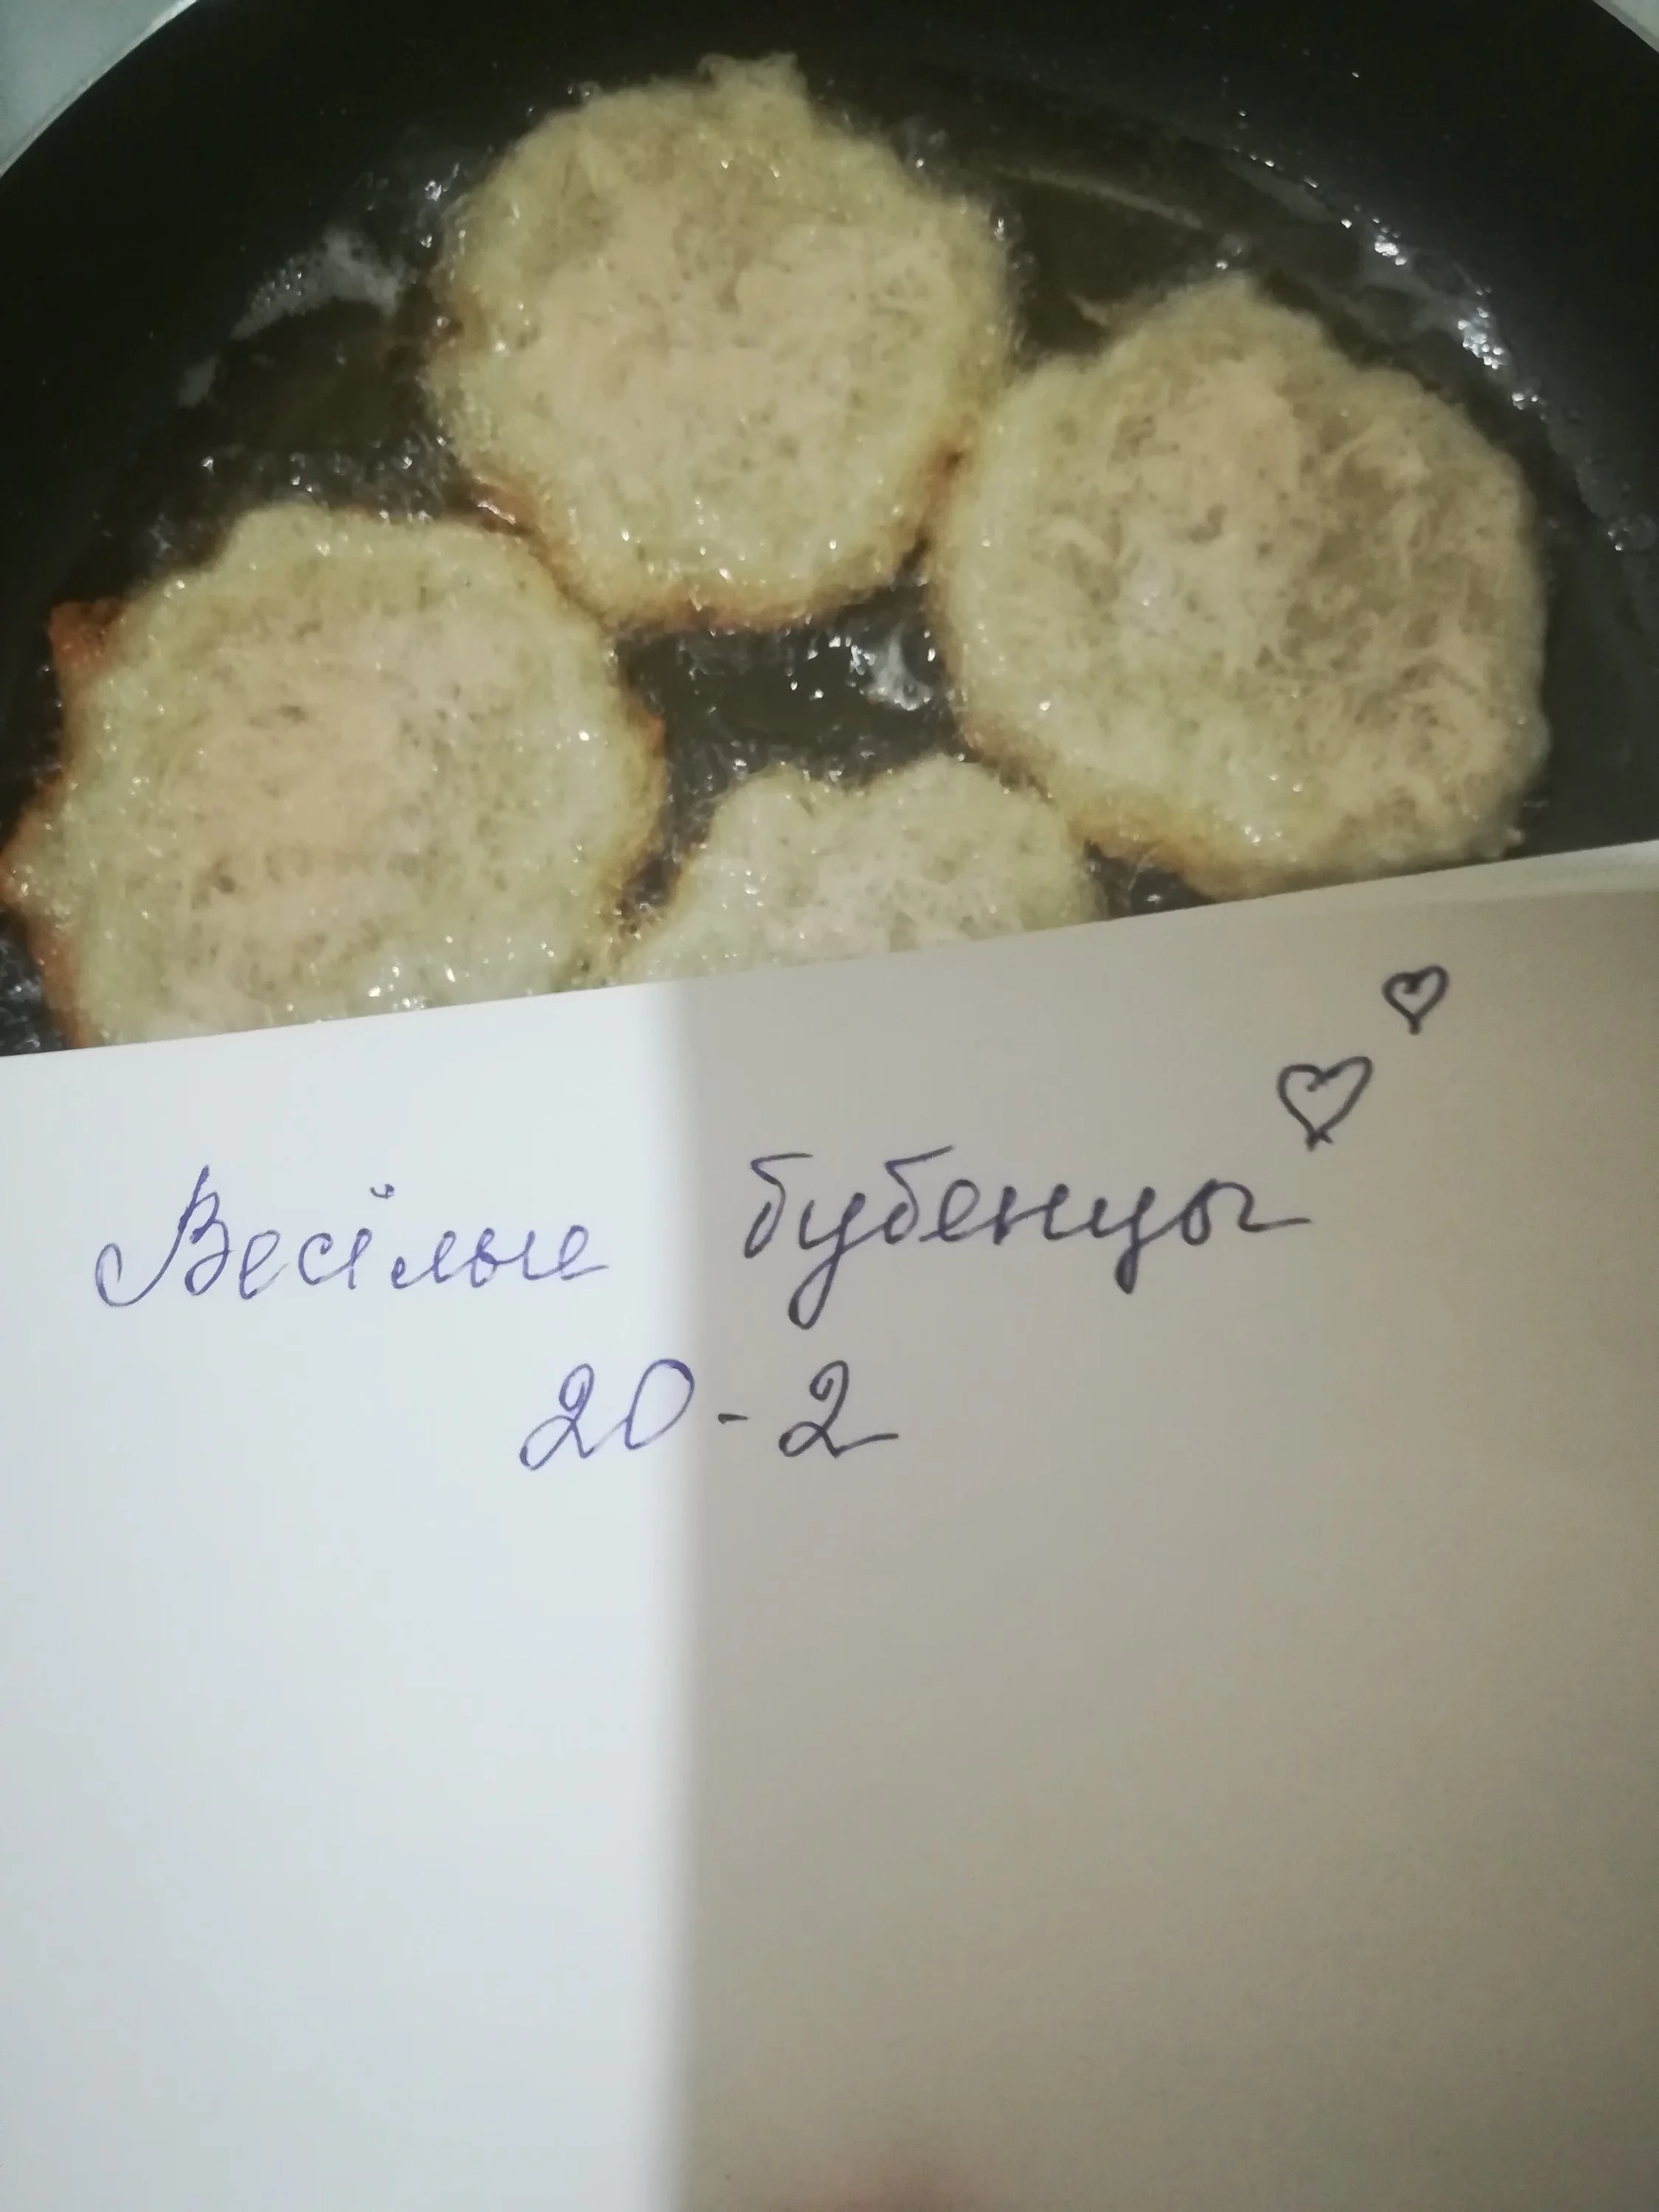 Весёлые бубенцы
20-2